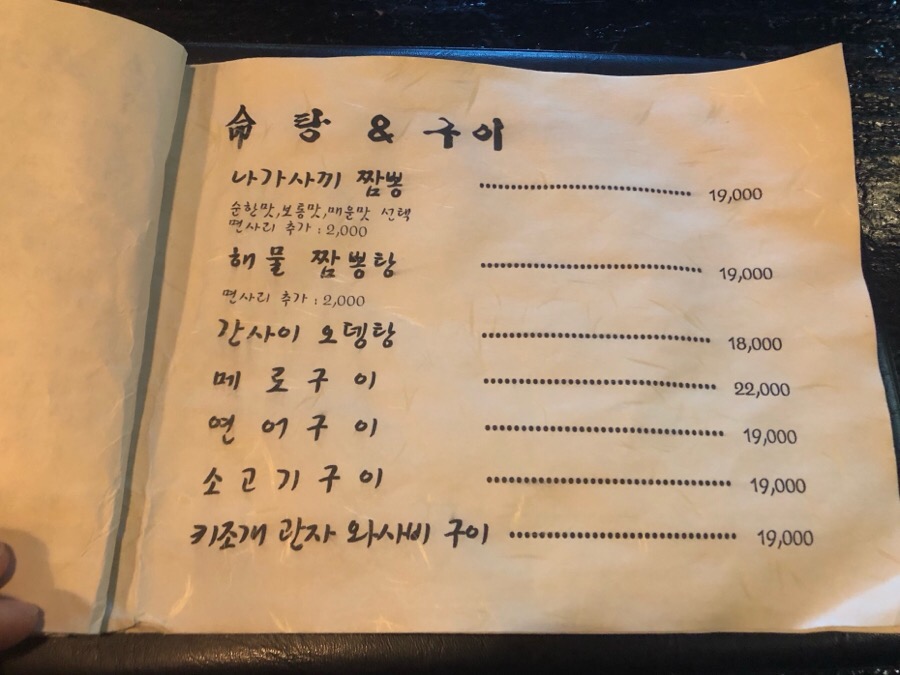 命 탕 & 구이
나가사끼 짬뽕 19,000
순한맛,보통맛,매운맛 선택
면사리 추가 : 2,000
해물 짬뽕탕 19,000
면사리 추가 : 2,000
간사이 오뎅탕 18,000
메로구이 22,000
연어구이 19,000
소고기구이 19,000
키조개 관자 와사비 구이 19,000